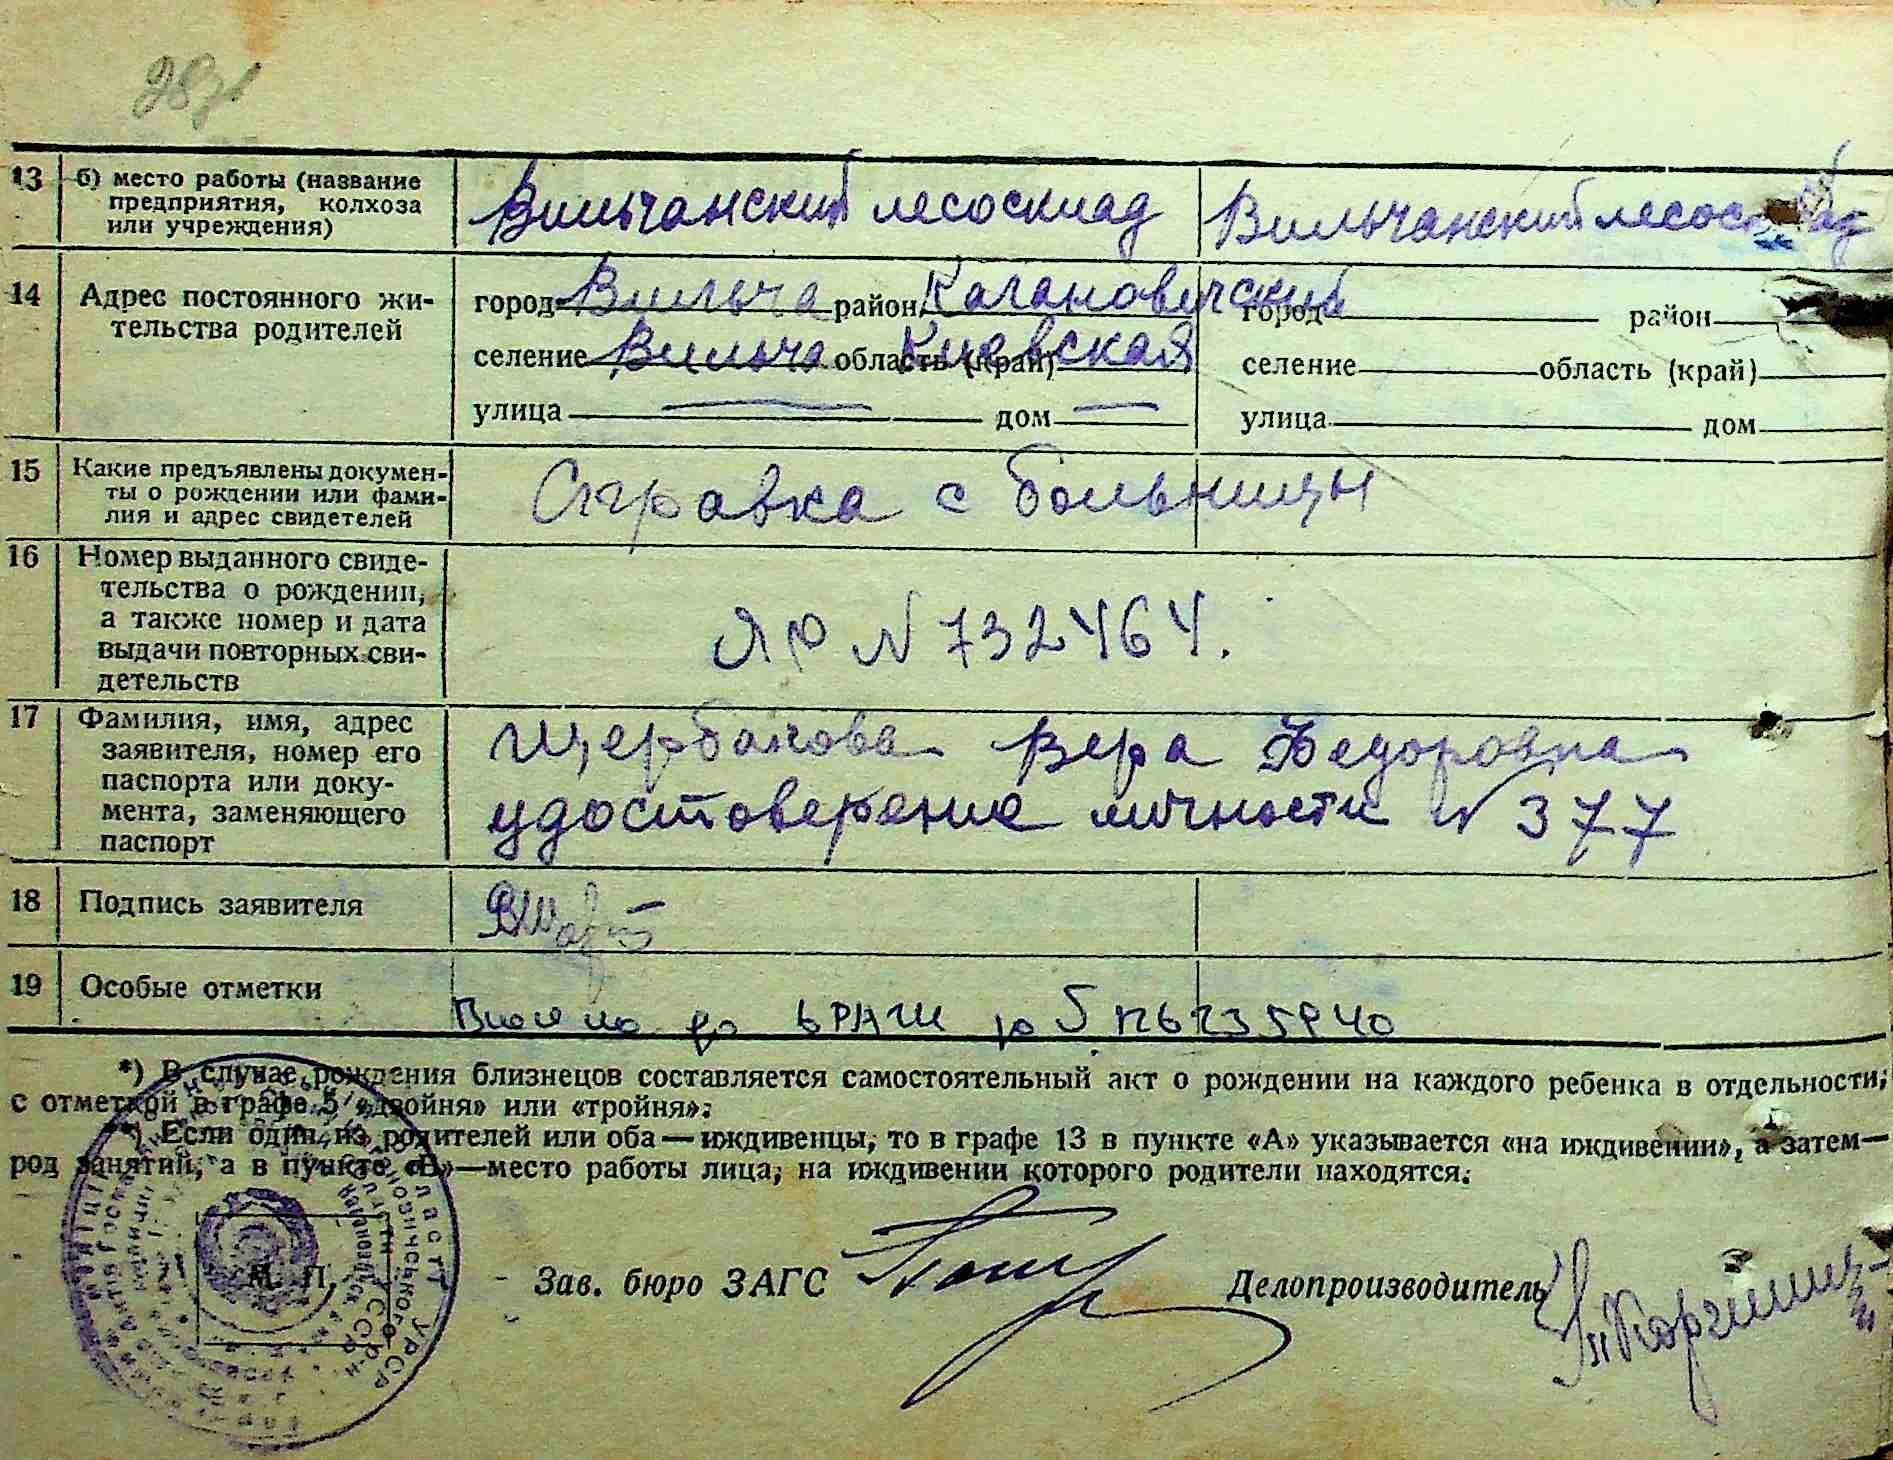 13 б) место работы (название предприятия, колхоза или учреждения) Вильчанский лесосклад Вильчанский лесосклад
14 Адрес постоянного жительства родителей
город Вильча район Кагановичский город район
селение Вильча область (край) Киевская селение область (край)
улица — дом — улица дом
15 Какие предъявлены документы о рождении или фамилия и адрес свидетелей Справка с больницы
16 Номер выданного свидетельства о рождении, а также номер и дата выдачи повторных свидетельств ЯР N 732464.
17 Фамилия, имя, адрес заявителя, номер его паспорта или документа, заменяющего паспорт
Щербакова Вера Федоровна
удостоверение личности N 377
18 Подпись заявителя
19 Особые отметки
*) В случае рождения близнецов составляется самостоятельный акт о рождении на каждого ребенка в отдельности,
с отметкой в графе 5 «двойня» или «тройня».
Если один из родителей или оба — иждивенцы, то в графе 13 в пункте «А» указывается «на иждивении», а затем—
род занятий, а в пункте «Б»—место работы лица, на иждивении которого родители находятся.
М. П. Зав. бюро ЗАГС Делопроизводитель